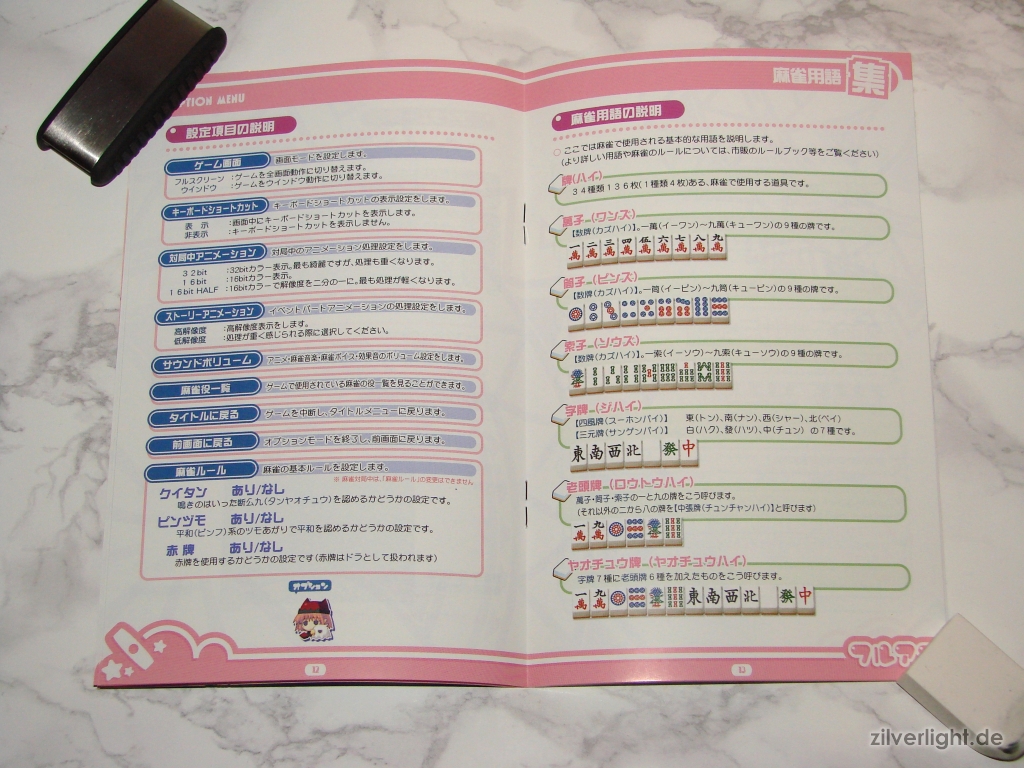 TION MENU
設定項目の説明
ゲーム画面 画面モードを設定します。
フルスクリーン :ゲームを全画面動作に切り替えます。
ウインドウ :ゲームをウインドウ動作に切り替えます。
キーボードショートカット キーボードショートカットの表示設定をします。
表 示 :画面中にキーボードショートカットを表示します。
非表示 :キーボードショートカットを表示しません。
対局中アニメーション 対局中のアニメーション処理設定をします。
32bit :32bitカラー表示。最も綺麗ですが、処理も重くなります。
16bit :16bitカラー表示。
16bit HALF :16bitカラーで解像度を二分の一に。最も処理が軽くなります。
ストーリーアニメーション イベントパートアニメーションの処理設定をします。
高解像度 :高解像度表示をします。
低解像度 :処理が重く感じられる際に選択してください。
サウンドボリューム アニメ・麻雀音楽・麻雀ボイス・効果音のボリューム設定をします。
麻雀役一覧 ゲームで使用されている麻雀の役一覧を見ることができます。
タイトルに戻る ゲームを中断し、タイトルメニューに戻ります。
前画面に戻る オプションモードを終了し、前画面に戻ります。
麻雀ルール 麻雀の基本ルールを設定します。
※ 麻雀対局中は、「麻雀ルール」の変更はできません
クイタン あり/なし
鳴きのはいった断公九(タンヤオチュウ)を認めるかどうかの設定です。
ピンヅモ あり/なし
平和(ピンフ)系のツモあがりで平和を認めるかどうかの設定です。
赤 牌 あり/なし
赤牌を使用するかどうかの設定です(赤牌はドラとして扱われます)
オプション
12
麻雀用語集
麻雀用語の説明
○ ここでは麻雀で使用される基本的な用語を説明します。
(より詳しい用語や麻雀のルールについては、市販のルールブック等をご覧ください)
牌(ハイ)
34種類136枚(1種類4枚)ある、麻雀で使用する道具です。
萬子(ワンズ)
【数牌(カズハイ)】。一萬(イーワン)〜九萬(キューワン)の9種の牌です。
一萬 二萬 三萬 四萬 伍萬 六萬 七萬 八萬 九萬
筒子(ピンズ)
【数牌(カズハイ)】。一筒(イーピン)〜九筒(キューピン)の9種の牌です。
索子(ソウズ)
【数牌(カズハイ)】。一索(イーソウ)〜九索(キューソウ)の9種の牌です。
字牌(ジハイ)
【四風牌(スーホンパイ)】 東(トン)、南(ナン)、西(シャー)、北(ペイ)
【三元牌(サンゲンパイ)】 白(ハク)、發(ハツ)、中(チュン) の7種です。
東 南 西 北 發 中
老頭牌(ロウトウハイ)
萬子・筒子・索子の一と九の牌をこう呼びます。
(それ以外の二から八の牌を【中張牌(チュンチャンハイ)】と呼びます)
一萬 九萬
ヤオチュウ牌(ヤオチュウハイ)
字牌7種に老頭牌6種を加えたものをこう呼びます。
一萬 九萬 東 南 西 北 發 中
13
フルア
zilverlight.de